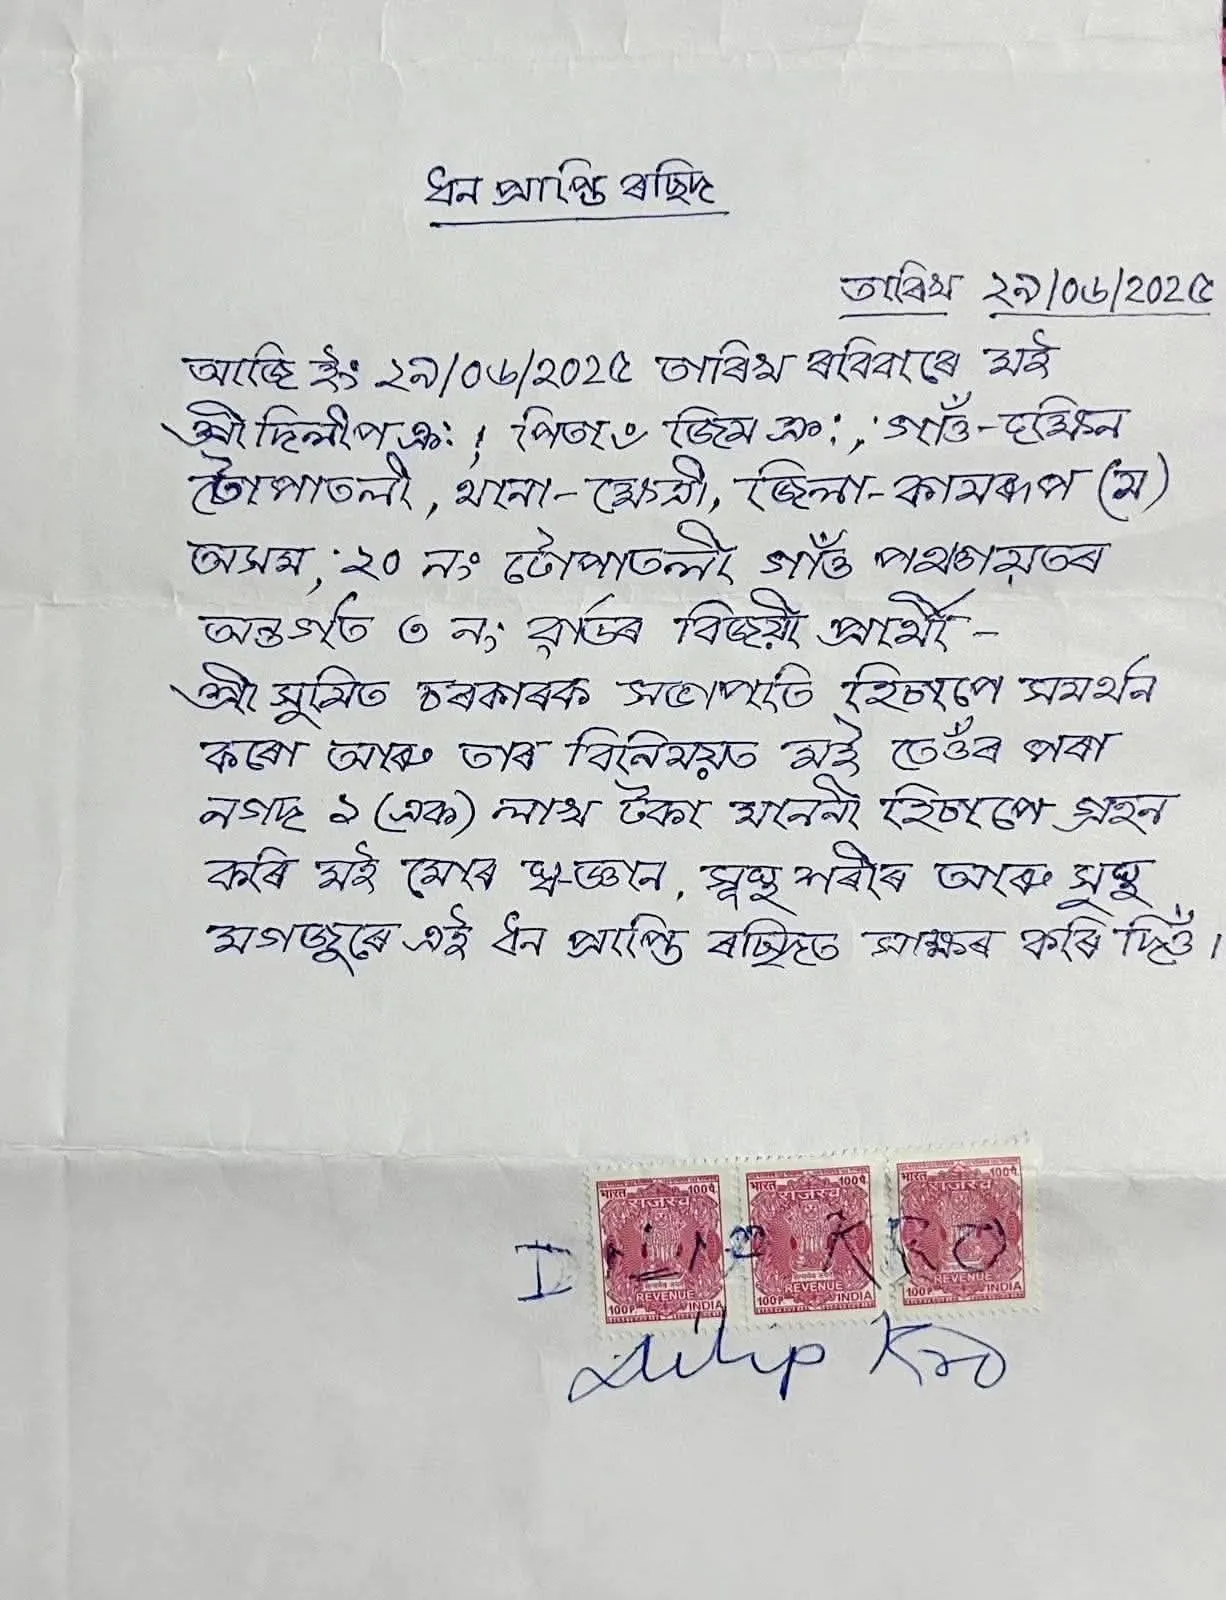 ধন প্ৰাপ্তি ৰছিদ
তাৰিখ ২৯/০৬/২০২৫
আজি ইং ২৯/০৬/২০২৫ তাৰিখ ৰবিবাৰে মই
শ্ৰী দিলীপ ক্ৰ:, পিতাঃ জিম ক্ৰ:, গাওঁ-দক্ষিন
টোপাতলী, থানা-ক্ষেত্ৰী, জিলা-কামৰূপ (ম)
অসম, ২০ নং টোপাতলী গাওঁ পঞ্চায়তৰ
অন্তৰ্গত ৩ নং ৱাৰ্ডৰ বিজয়ী প্ৰাৰ্থী -
শ্ৰী সুমিত চৰকাৰক সভাপতি হিচাপে সমৰ্থন
কৰো আৰু তাৰ বিনিময়ত মই তেওঁৰ পৰা
নগদ ১ (এক) লাখ টকা মাননী হিচাপে গ্ৰহন
কৰি মই মোৰ স্ব-জ্ঞান, সুস্থ শৰীৰ আৰু সুস্থ
মগজুৰে এই ধন প্ৰাপ্তি ৰছিদত সাক্ষৰ কৰি দিওঁ।
भारत 100पै. भारत 100पै. भारत 100पै.
राजस्व राजस्व राजस्व
DILIP KRO
REVENUE REVENUE REVENUE
100P INDIA 100P INDIA 100P INDIA
Dilip Kro